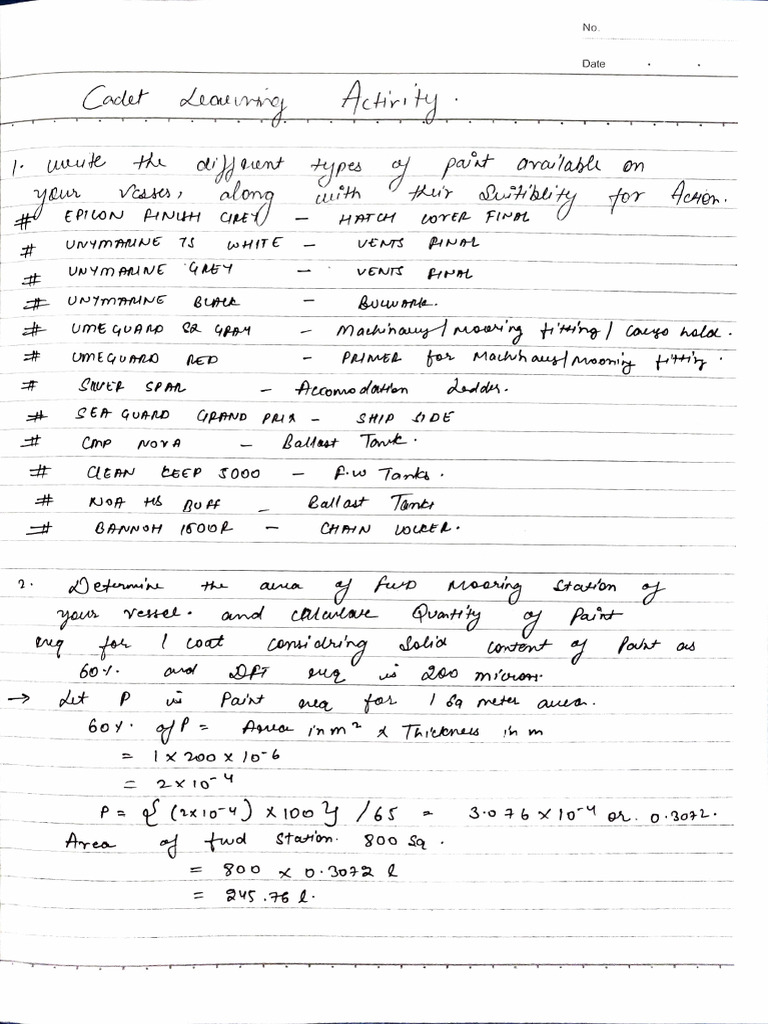 No.
Date
Cadet Learning Activity.
1. write the different types of paint available on
your vesses, along with their Suitiblity for Action.
# EPILON FINISH GREY - HATCH COVER FINAL
# UNYMARINE TS WHITE - VENTS FINAL
# UNYMARINE GREY - VENTS FINAL
# UNYMARINE BLACK - BULWARK.
# UMEGUARD SR GRAY - Machinary/mooring fitting/ Cargo hold.
# UMEGUARD RED - PRIMER for Machinary/Mooring fitting.
# SILVER SPAR - Accomodation Ladder.
# SEA GUARD GRAND PRIX - SHIP SIDE
# CMP NOVA - Ballast Tank.
# CLEAN KEEP 5000 - F.W Tanks.
# NOA HS BUFF - Ballast Tanks
# BANNOH 1500R - CHAIN LOCKER.
2. Determine the area of FWD Mooring Station of
your vessel. and calculate Quantity of Paint
req for 1 coat considring Solid content of Paint as
60%. and DFT req is 200 micron.
→ Let P is Paint req for 1 Sq meter area.
60%. of P = Area in m² x Thickness in m
= 1 x 200 x 10-6
= 2 x 10-4
P = { (2x10-4) x 100 } /65 = 3.076 x 10-4 or. 0.3072.
Area of fwd Station. 800 Sq.
= 800 x 0.3072 l
= 245.76 l.